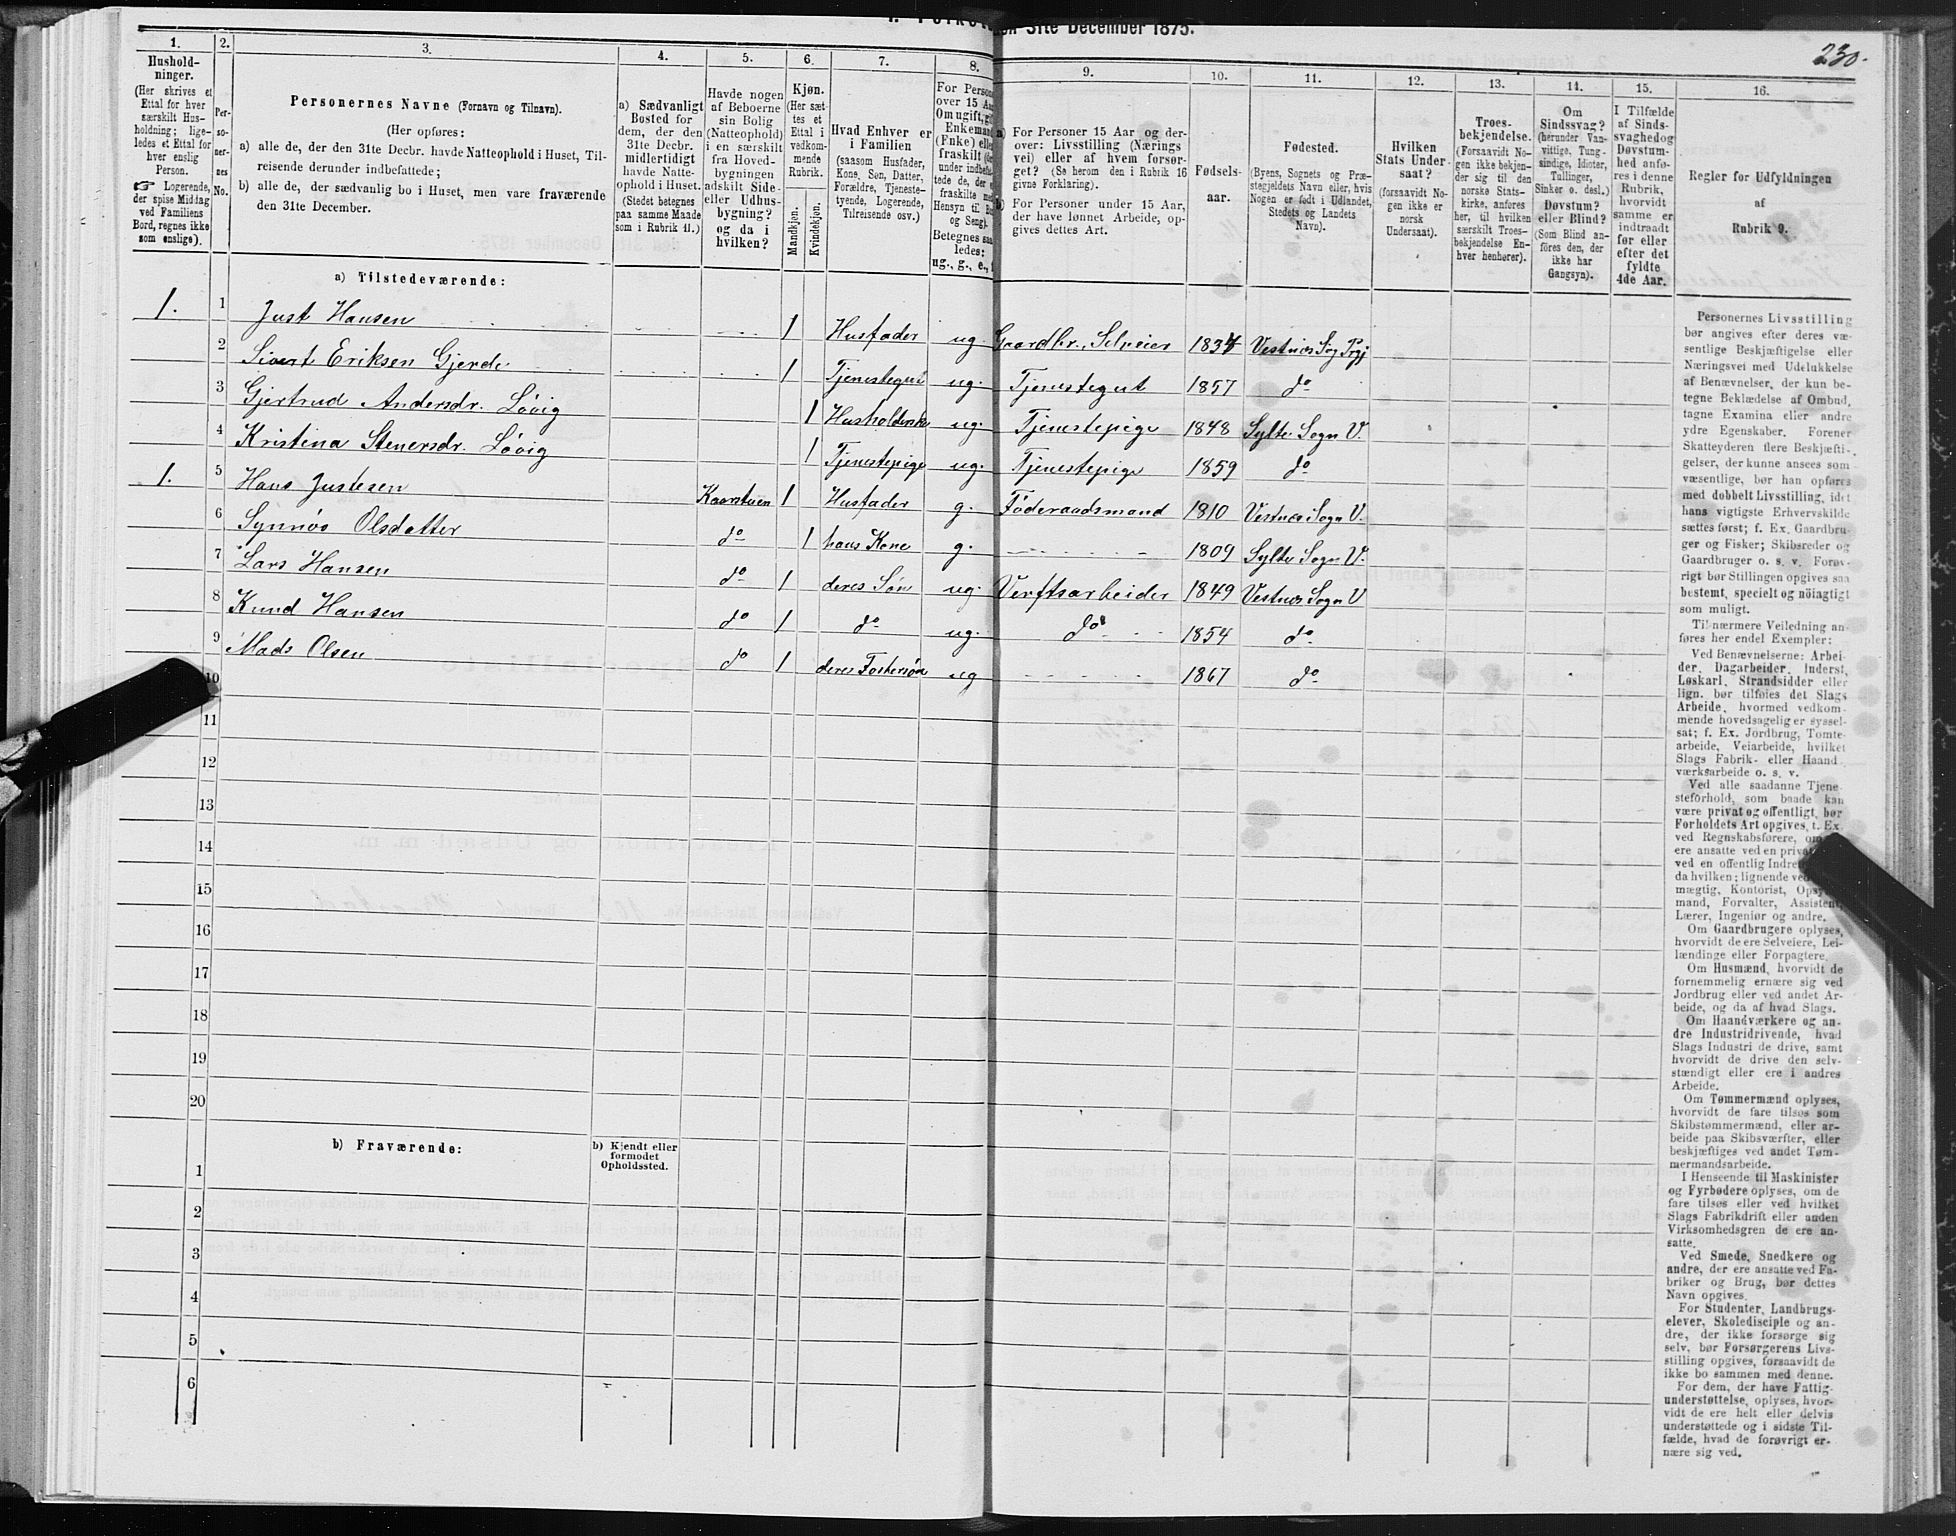 den 31te December 1875.
230.
1.
2.
3.
4.
5.
6.
7.
8.
9.
10.
11.
12.
13.
14.
15.
16.
Hushold-
ninger.
(Her skrives et
Ettal for hver
særskilt Hus-
holdning; lige-
ledes et Ettal for
hver enslig
Person.
☞ Logerende,
der spise Middag
ved Familiens
Bord, regnes ikke
som enslige).
Per-
so-
ner-
nes
No.
Personernes Navne (Fornavn og Tilnavn).
(Her opføres:
a) alle de, der den 31te Decbr. havde Natteophold i Huset, Til-
reisende derunder indbefattede;
b) alle de, der sædvanlig bo i Huset, men vare fraværende
den 31te December.
a) Sædvanligt
Bosted for
dem, der den
31te Decbr.
midlertidigt
havde Natte-
ophold i Huset.
(Stedet betegnes
paa samme Maade
som i Rubrik 11.)
Havde nogen
af Beboerne
sin Bolig
(Natteophold)
i en særskilt
fra Hoved-
bygningen
adskilt Side-
eller Udhus-
bygning?
og da i
hvilken?
Kjøn.
(Her sæt-
tes et
Ettal i
vedkom-
mende
Rubrik.
Mandkjøn.
Kvindekjøn.
Hvad Enhver er
i Familien
(saasom Husfader,
Kone, Søn, Datter,
Forældre, Tjeneste-
tyende, Logerende,
Tilreisende osv.)
For Person
over 15 Aa
Om ugift, gif
Enkemand
(Enke) elle
fraskilt
under indbefa
tede de, der e
fraskilte med
Hensyn til Bo
og Seng).
Betegnes saa
ledes:
ug., g., e.,
a) For Personer 15 Aar og der-
over: Livsstilling (Nærings
vei) eller af hvem forsør-
get? (Se herom den i Rubrik 16
givne Forklaring).
b) For Personer under 15 Aar,
der have lønnet Arbeide, op-
gives dettes Art.
Fødsels-
aar.
Fødested.
(Byens, Sognets og Præ-
stegjeldets Navn eller, hvis
Nogen er født i Udlandet,
Stedets og Landets
Navn).
Hvilken
Stats Under-
saat?
(forsaavidt No-
gen ikke er
norsk
Undersaat).
Troes-
bekjendelse.
(Forsaavidt No-
gen ikke bekjen-
der sig til den
norske Stats-
kirke, anføres
her, til hvilken
særskilt Troes-
bekjendelse En-
hver henhører).
Om
Sindssvag?
(herunder Van-
vittige, Tung-
sindige, Idioter,
Tullinger,
Sinker o. desl.)
Døvstum?
eller Blind?
(Som Blind an-
føres den, der
ikke har
Gangsyn).
I Tilfælde
af Sinds-
svaghed og
Døvstum-
hed anfø-
res i denne
Rubrik,
hvorvidt
samme er
indtraadt
før eller
efter det
fyldte
4de Aar.
Regler for Udfyldningen
af
Rubrik 9.
a) Tilstedeværende:
1. 1 Just Hansen 1 Husfader ug. Gaardbr. Selveier 1834 Vestnes Sog Prgj
2 Sivert Eriksen Gjerde 1 Tjenestegut ug. Tjenestegut 1857 do
3 Gjertrud Andersdr. Løvig 1 Husholderske ug. Tjenestepige 1848 Sylte Sogn V.
4 Kristina Stenersdr. Løvig 1 Tjenestepige ug. Tjenestepige 1859 do
1. 5 Hans Justesen Kaarstuen 1 Husfader g. Føderaadsmand 1810 Vestnes Sogn V.
6 Synnøv Olsdatter do 1 hans Kone g. 1809 Sylte Sogn V.
7 Lars Hansen do 1 deres Søn ug. Verftsarbeider 1849 Vestnes Sogn V
8 Knud Hansen do 1 do ug. do 1854 do
9 Mads Olsen do 1 deres Fostersøn ug 1867 do
10
11
12
13
14
15
16
17
18
19
20
b) Fraværende:
b) Kjendt eller
formodet
Opholdssted.
1
2
3
4
5
6
Personernes Livsstilling
bør angives efter deres væ-
sentlige Beskjæftigelse eller
Næringsvei med Udelukkelse
af Benævnelser, der kun be-
tegne Beklædelse af Ombud,
tagne Examina eller andre
ydre Egenskaber. Forener
Skatteyderen flere Beskjæfti-
gelser, der kunne ansees som
væsentlige, bør han opføres
med dobbelt Livsstilling, idet
hans vigtigste Erhvervskilde
sættes først; f. Ex. Gaardbru-
ger og Fisker; Skibsreder og
Gaardbruger o. s. v. Forøv-
rigt bør Stillingen opgives saa
bestemt, specielt og nöiagtigt
som muligt.
Til nærmere Veiledning an-
føres her endel Exempler:
Ved Benævnelserne: Arbei-
der, Dagarbeider, Inderst,
Løskarl, Strandsidder eller
lign. bør tilføies det Slags
Arbeide, hvormed vedkom-
mende hovedsagelig er syssel-
sat; f. Ex. Jordbrug, Tomte-
arbeide, Veiarbeide, hvilket
Slags Fabrik- eller Haand
værksarbeide o. s. v.
Ved alle saadanne Tjene-
steforhold, som baade kan
være privat og offentligt, bør
Forholdets Art opgives, t. Ex
ved Regnskabsførere, om
ere ansatte ved en privat
ved en offentlig Indre
da hvilken; lignende ved
mægtig, Kontorist, Opsy
mand, Forvalter, Assistent,
Lærer, Ingeniør og andre.
Om Gaardbrugere oplyses,
hvorvidt de ere Selveiere, Lei-
lændinge eller Forpagtere.
Om Husmænd, hvorvidt de
fornemmelig ernære sig ved
Jordbrug eller ved andet Ar-
beide, og da af hvad Slags.
Om Haandværkere og an-
dre Industridrivende, hvad
Slags Industri de drive, samt
hvorvidt de drive den selv-
stændigt eller ere i andres
Arbeide.
Om Tømmermænd oplyses,
hvorvidt de fare tilsøs som
Skibstømmermænd, eller ar-
beide paa Skibsværfter, eller
beskjæftiges ved andet Tøm-
mermandsarbeide.
I Henseende til Maskinister
og Fyrbødere oplyses, om de
fare tilsøs eller ved hvilket
Slags Fabrikdrift eller anden
Virksomhedsgren de ere an-
satte.
Ved Smede, Snedkere og
andre, der ere ansatte ved Fa-
briker og Brug, bør dettes
Navn opgives.
For Studenter, Landbrugs-
elever, Skoledisciple og an-
dre, der ikke forsørge sig
selv, bør Forsørgerens Livs-
stilling opgives, forsaavidt de
ikke bo sammen med denne.
For dem, der have Fattig-
understøttelse, oplyses, hvor-
vidt de ere helt eller delvis
understøttede og i sidste Til-
fælde, hvad de forøvrigt er-
nære sig ved.